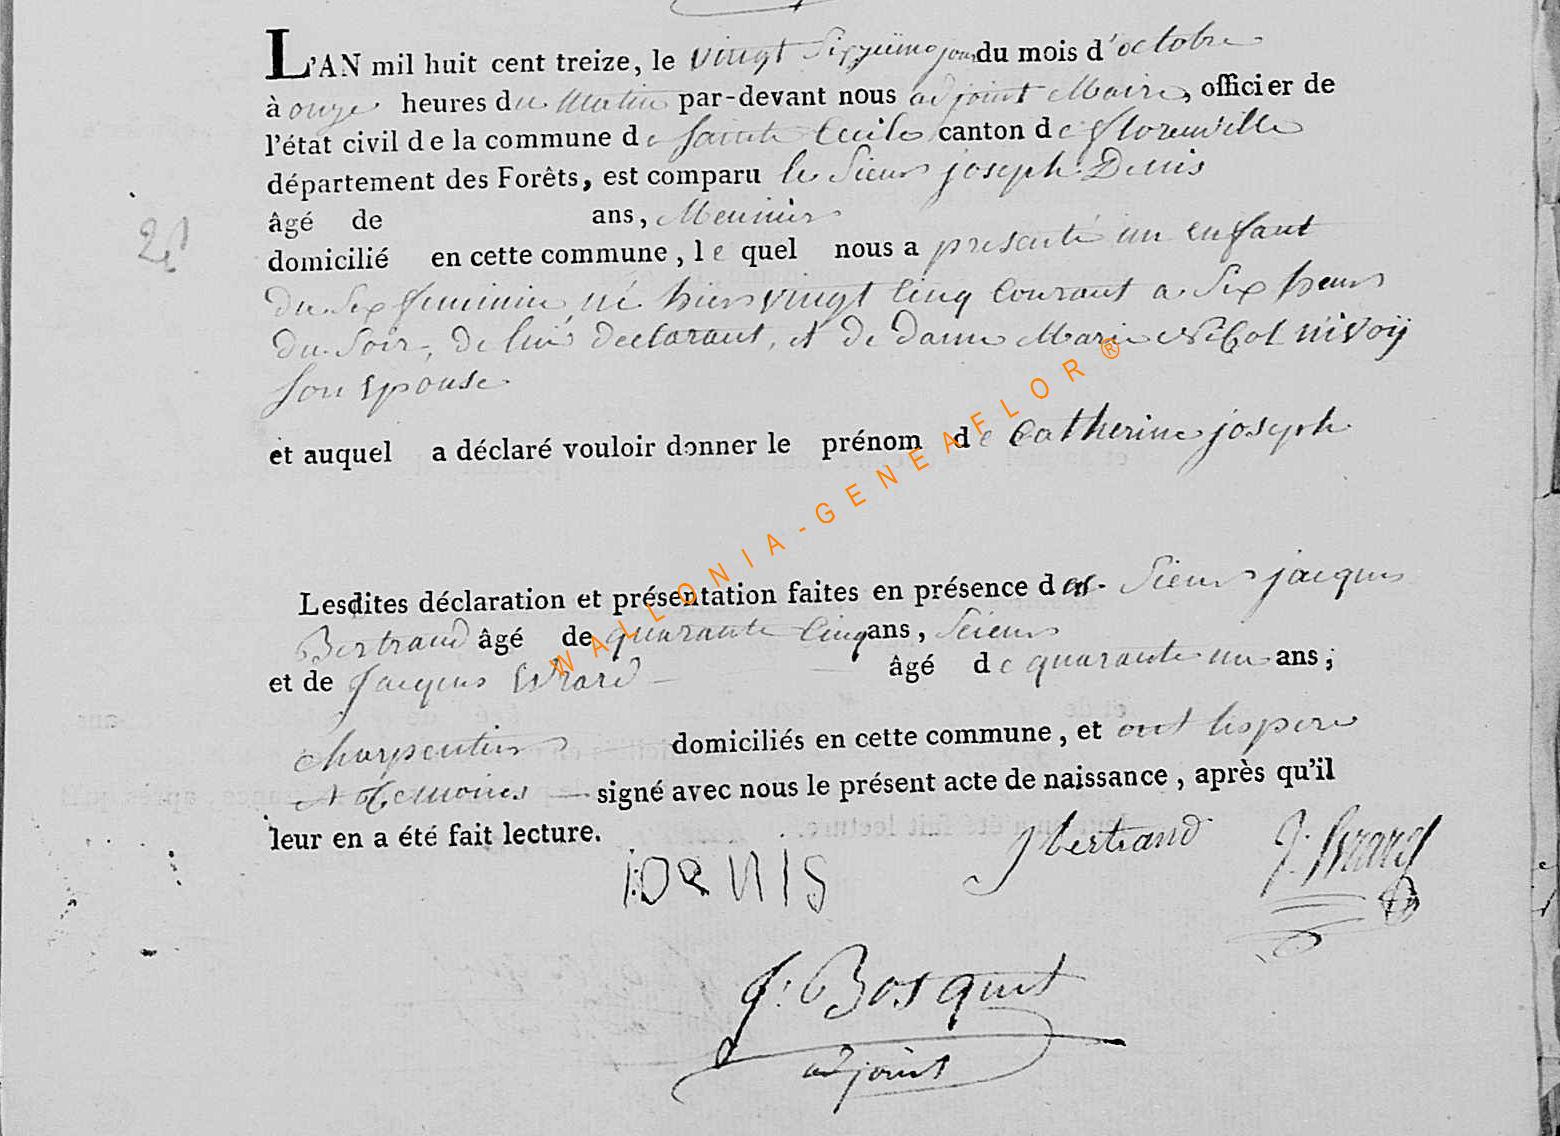 L'AN mil huit cent treize, le vingt Sixzieme jour du mois d'octobre
à onze heures du Matin par-devant nous adjoint Maire, officier de
l'état civil de la commune de Sainte Cecile canton de florenville
département des Forêts, est comparu le Sieur joseph Denis
âgé de ans, Meunier
domicilié en cette commune, le quel nous a presenté un enfant
du Sex feminin, né hier vingt Cinq Courant a Six heurs
du Soir, de lui declarant, et de dame Marie Nicol nivoÿ
Son Epouse
et auquel a déclaré vouloir donner le prénom de Catherine joseph
Lesdites déclaration et présentation faites en présence des Sieur jacques
Bertrand âgé de quarante Cinq ans, Scieur
et de Jacques Evrard âgé de quarante un ans;
charpentier domiciliés en cette commune, et ont les pere
et temoins signé avec nous le présent acte de naissance, après qu'il
leur en a été fait lecture.
i:DENIS J bertrand J: Evrard
J: Bosquet
adjoint
WALLONIA-GENEAFLOR ®